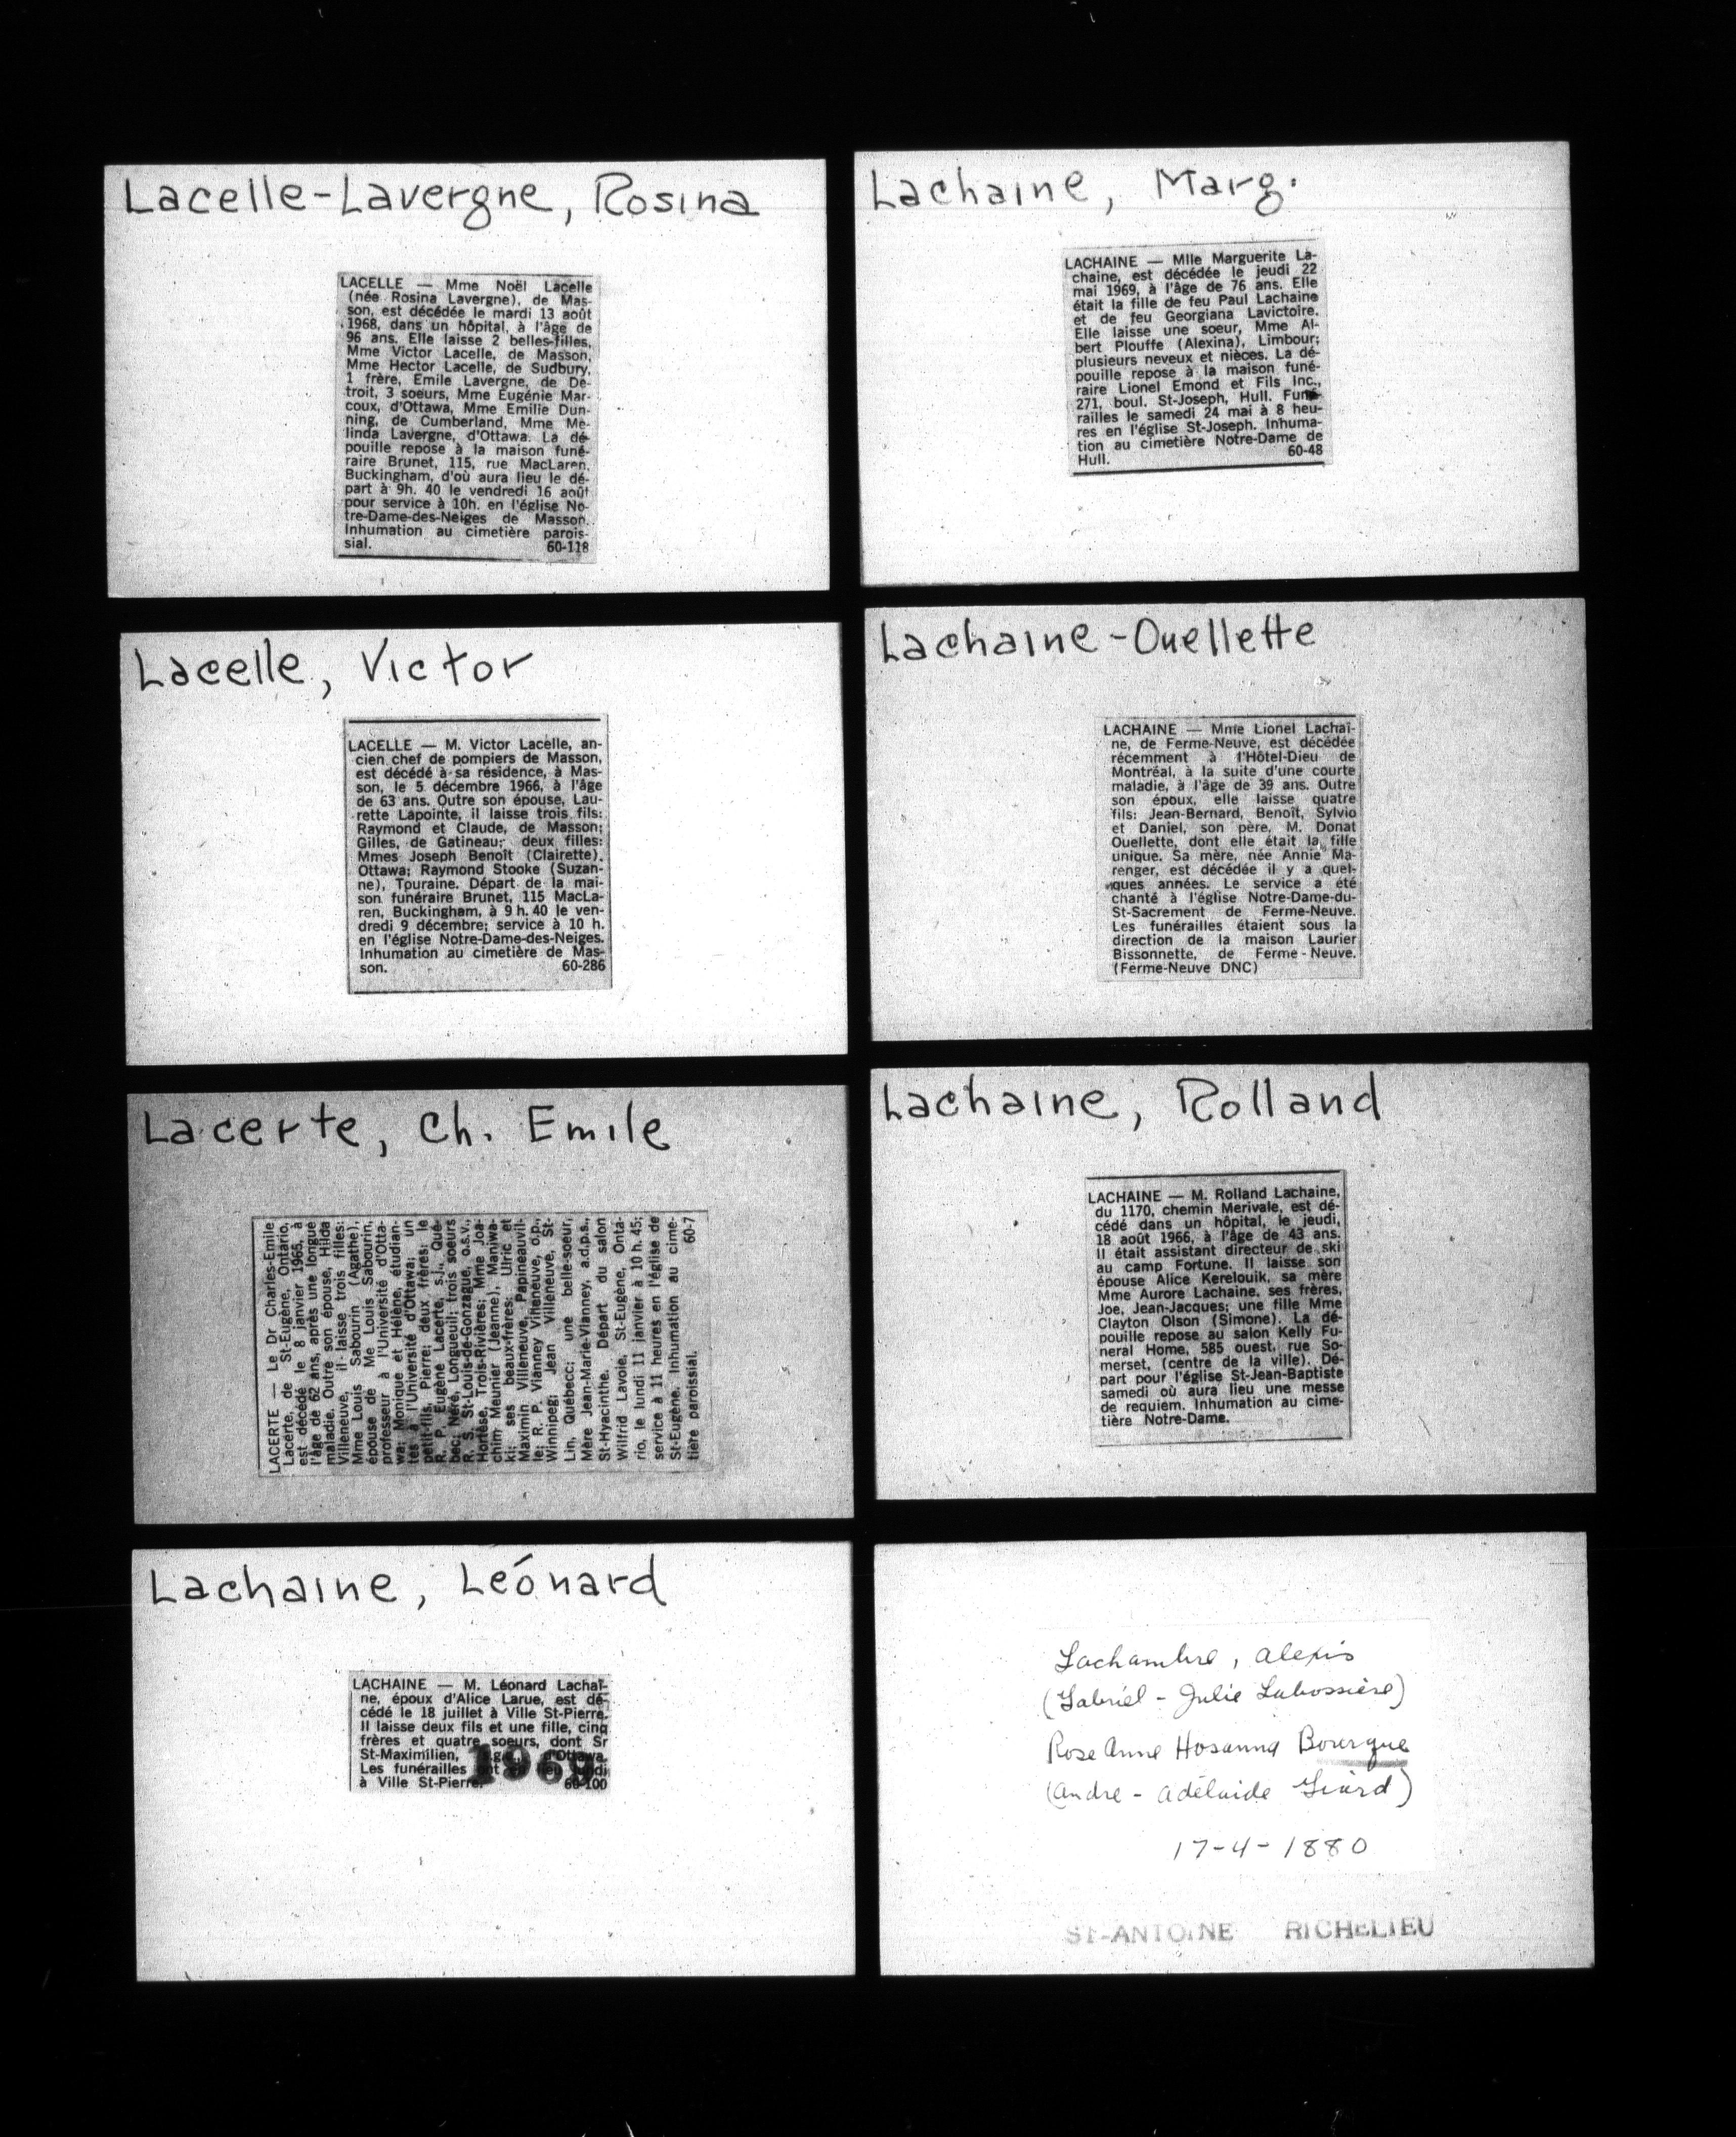 Lacelle-Lavergne, Rosina
LACELLE — Mme Noël Lacelle
(née Rosina Lavergne), de Mas-
son, est décédée le mardi 13 août
1968, dans un hôpital, à l'âge de
96 ans. Elle laisse 2 belles-filles,
Mme Victor Lacelle, de Masson,
Mme Hector Lacelle, de Sudbury,
1 frère, Emile Lavergne, de De-
troit, 3 soeurs, Mme Eugénie Mar-
coux, d'Ottawa, Mme Emilie Dun-
ning, de Cumberland, Mme Me-
linda Lavergne, d'Ottawa. La dé-
pouille repose à la maison funé-
raire Brunet, 115, rue MacLaren,
Buckingham, d'où aura lieu le dé-
part à 9h. 40 le vendredi 16 août
pour service à 10h. en l'église No-
tre-Dame-des-Neiges de Masson.
Inhumation au cimetière parois-
sial. 60-118
Lacelle, Victor
LACELLE — M. Victor Lacelle, an-
cien chef de pompiers de Masson,
est décédé à sa résidence, à Mas-
son, le 5 décembre 1966, à l'âge
de 63 ans. Outre son épouse, Lau-
rette Lapointe, il laisse trois fils:
Raymond et Claude, de Masson;
Gilles, de Gatineau; deux filles:
Mmes Joseph Benoît (Clairette),
Ottawa; Raymond Stooke (Suzan-
ne), Touraine. Départ de la mai-
son funéraire Brunet, 115 MacLa-
ren, Buckingham, à 9 h. 40 le ven-
dredi 9 décembre; service à 10 h.
en l'église Notre-Dame-des-Neiges.
Inhumation au cimetière de Mas-
son. 60-286
Lacerte, Ch. Emile
LACERTE — Le Dr Charles-Emile
Lacerte, de St-Eugène, Ontario,
est décédé le 8 janvier 1965, à
l'âge de 62 ans, après une longue
maladie. Outre son épouse, Hilda
Villeneuve, il laisse trois filles:
Mme Louis Sabourin (Agathe),
épouse de Me Louis Sabourin,
professeur à l'Université d'Otta-
wa; Monique et Hélène, étudian-
tes à l'Université d'Ottawa; un
petit-fils, Pierre; deux frères: le
R. P. Eugène Lacerte, s.j., Qué-
bec; Néré, Longueuil; trois soeurs
R. S. St-Louis-de-Gonzague, o.s.v.,
Hortèse, Trois-Rivières; Mme Joa-
chim Meunier (Jeanne), Maniwa-
ki; ses beaux-frères: Ulric et
Maximin Villeneuve, Papineauvil-
le; R. P. Vianney Villeneuve, o.p.,
Winnipeg; Jean Villeneuve, St-
Lin, Québecc; une belle-soeur,
Mère Jean-Marie-Vianney, a.d.p.s.,
St-Hyacinthe. Départ du salon
Wilfrid Lavoie, St-Eugène, Onta-
rio, le lundi 11 janvier à 10 h. 45;
service à 11 heures en l'église de
St-Eugène. Inhumation au cime-
tière paroissial. 60-7
Lachaine, Léonard
LACHAINE — M. Léonard Lachaî-
ne, époux d'Alice Larue, est dé-
cédé le 18 juillet à Ville St-Pierre.
Il laisse deux fils et une fille, cinq
frères et quatre soeurs, dont Sr
St-Maximilien, d'Ottawa.
Les funérailles ont eu lieu
à Ville St-Pierre. 60-100
196
Lachaine, Marg.
LACHAINE — Mlle Marguerite La-
chaine, est décédée le jeudi 22
mai 1969, à l'âge de 76 ans. Elle
était la fille de feu Paul Lachaine
et de feu Georgiana Lavictoire.
Elle laisse une soeur, Mme Al-
bert Plouffe (Alexina), Limbour;
plusieurs neveux et nièces. La dé-
pouille repose à la maison funé-
raire Lionel Emond et Fils Inc.,
271, boul. St-Joseph, Hull. Funé-
railles le samedi 24 mai à 8 heu-
res en l'église St-Joseph. Inhuma-
tion au cimetière Notre-Dame de
Hull. 60-48
Lachaine-Ouellette
LACHAINE — Mme Lionel Lachaî-
ne, de Ferme-Neuve, est décédée
récemment à l'Hôtel-Dieu de
Montréal, à la suite d'une courte
maladie, à l'âge de 39 ans. Outre
son époux, elle laisse quatre
fils: Jean-Bernard, Benoît, Sylvio
et Daniel, son père, M. Donat
Ouellette, dont elle était la fille
unique. Sa mère, née Annie Ma-
renger, est décédée il y a quel-
ques années. Le service a été
chanté à l'église Notre-Dame-du-
St-Sacrement de Ferme-Neuve.
Les funérailles étaient sous la
direction de la maison Laurier
Bissonnette, de Ferme-Neuve.
(Ferme-Neuve DNC)
Lachaine, Rolland
LACHAINE — M. Rolland Lachaine,
du 1170, chemin Merivale, est dé-
cédé dans un hôpital, le jeudi,
18 août 1966, à l'âge de 43 ans.
Il était assistant directeur de ski
au camp Fortune. Il laisse son
épouse Alice Kerelouik, sa mère
Mme Aurore Lachaine, ses frères,
Joe, Jean-Jacques; une fille Mme
Clayton Olson (Simone). La dé-
pouille repose au salon Kelly Fu-
neral Home, 585 ouest, rue So-
merset, (centre de la ville). Dé-
part pour l'église St-Jean-Baptiste
samedi où aura lieu une messe
de requiem. Inhumation au cime-
tière Notre-Dame.
Lachambre, Alexis
(Gabriel - Julie Labossière)
Rose Anne Hosanna Bourque
(André - Adélaide Girard)
17-4-1880
ST-ANTOINE RICHELIEU